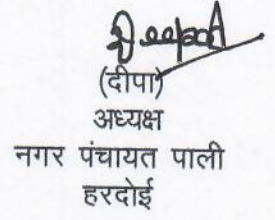 (दीपा)
अध्यक्ष
नगर पंचायत पाली
हरदोई